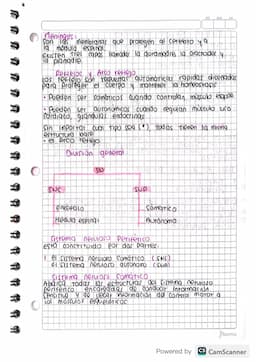 Meninges:
Son las membranas que protegen al cerebro y a
la médula espinal.
Existen tres capas llamada la duramadre, la aracnoides y
la piamadre.
Reflejos y Arco reflejo
Los reflejos son respuestas automáticas rápidas diseñadas
para proteger el cuerpo y mantener la homeostasis
• Pueden ser somáticos cuando controlan músculo esquele
• Pueden ser autonómicos cuando regulan músculo liso
cardiaco, glándulas endocrinas
Sin importar cual tipo sea, todos tienen la misma
estructura base
• el arco reflejo
División general
SN
SNC
SNP
Encéfalo
Somático
Médula espinal
Autónomo
Sistema nervioso Periférico
está constituido por dos partes:
el sistema nervioso somático (SNS)
el sistema nervioso autónomo (SNA)
Sistema nervioso Somático
Abarca todas las estructuras del sistema nervioso
periférico encargadas de conducir información
y de llevar información del control motor a
los músculos esqueléticos
Powered by CamScanner